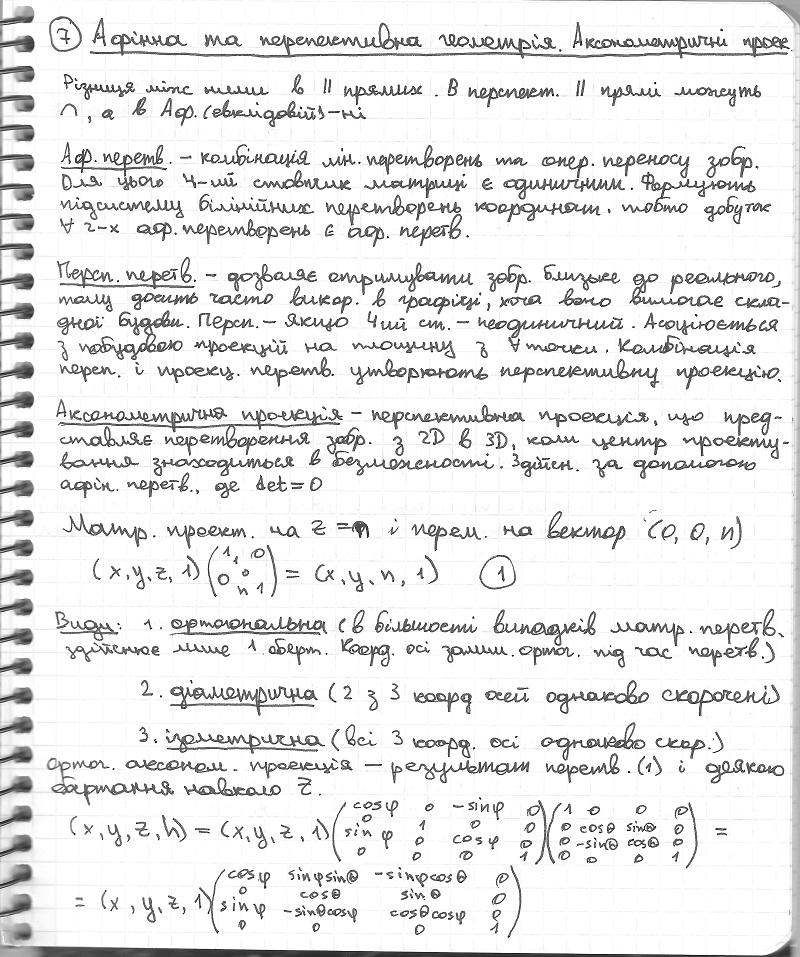 7 Афінна та перспективна геометрія. Аксонометричні проек.
Різниця між ними в || прямих. В перспект. || прямі можуть
∩, а в Аф. (евклідовій) - ні
Аф. перетв. - комбінація лін. перетворень та опер. переносу зобр.
Для цього 4-ий стовпчик матриці є одиничним. Формують
підсистему білінійних перетворень координат. тобто добуток
∀ 2-х аф. перетворень є аф. перетв.
Персп. перетв. - дозваляє отримувати зобр. близьке до реального,
тому досить часто викор. в графіці, хоча воно вимагає скла-
дної будови. Персп. - якщо 4ий ст. - неодиничний. Асоціюється
з побудовою проекцій на площину з ∀ точки. Комбінація
персп. і проекц. перетв. утворюють перспективну проекцію.
Аксонометрична проекція - перспективна проекція, що пред-
ставляє перетворення зобр. з 2D в 3D, коли центр проекту-
вання знаходиться в безмежності. Здійсн. за допомогою
афін. перетв., де det = 0
Матр. проект. на z = n і перем. на вектор (0, 0, n)
(x, y, z, 1) (1 1 0 0 0 n 1) = (x, y, n, 1) 1
Види: 1. ортогональна (в більшості випадків матр. перетв.
здійснює лише 1 оберт. Коорд. осі залиш. ортог. під час перетв.)
2. діаметрична (2 з 3 коорд осей однаково скорочені)
3. ізометрична (всі 3 коорд. осі однаково скор.)
ортог. аксоном. проекція - результат перетв. (1) і деякого
обертання навколо Z.
(x, y, z, h) = (x, y, z, 1) (cosφ 0 -sinφ 0 0 1 0 0 sin φ 0 cosφ 0 0 0 0 1) (1 0 0 0 0 cosθ sinθ 0 0 -sinθ cosθ 0 0 0 0 1) =
= (x, y, z, 1) (cosφ sinφsinθ -sinφcosθ 0 0 cosθ sinθ 0 sinφ -sinθcosφ cosθcosφ 0 0 0 0 1)